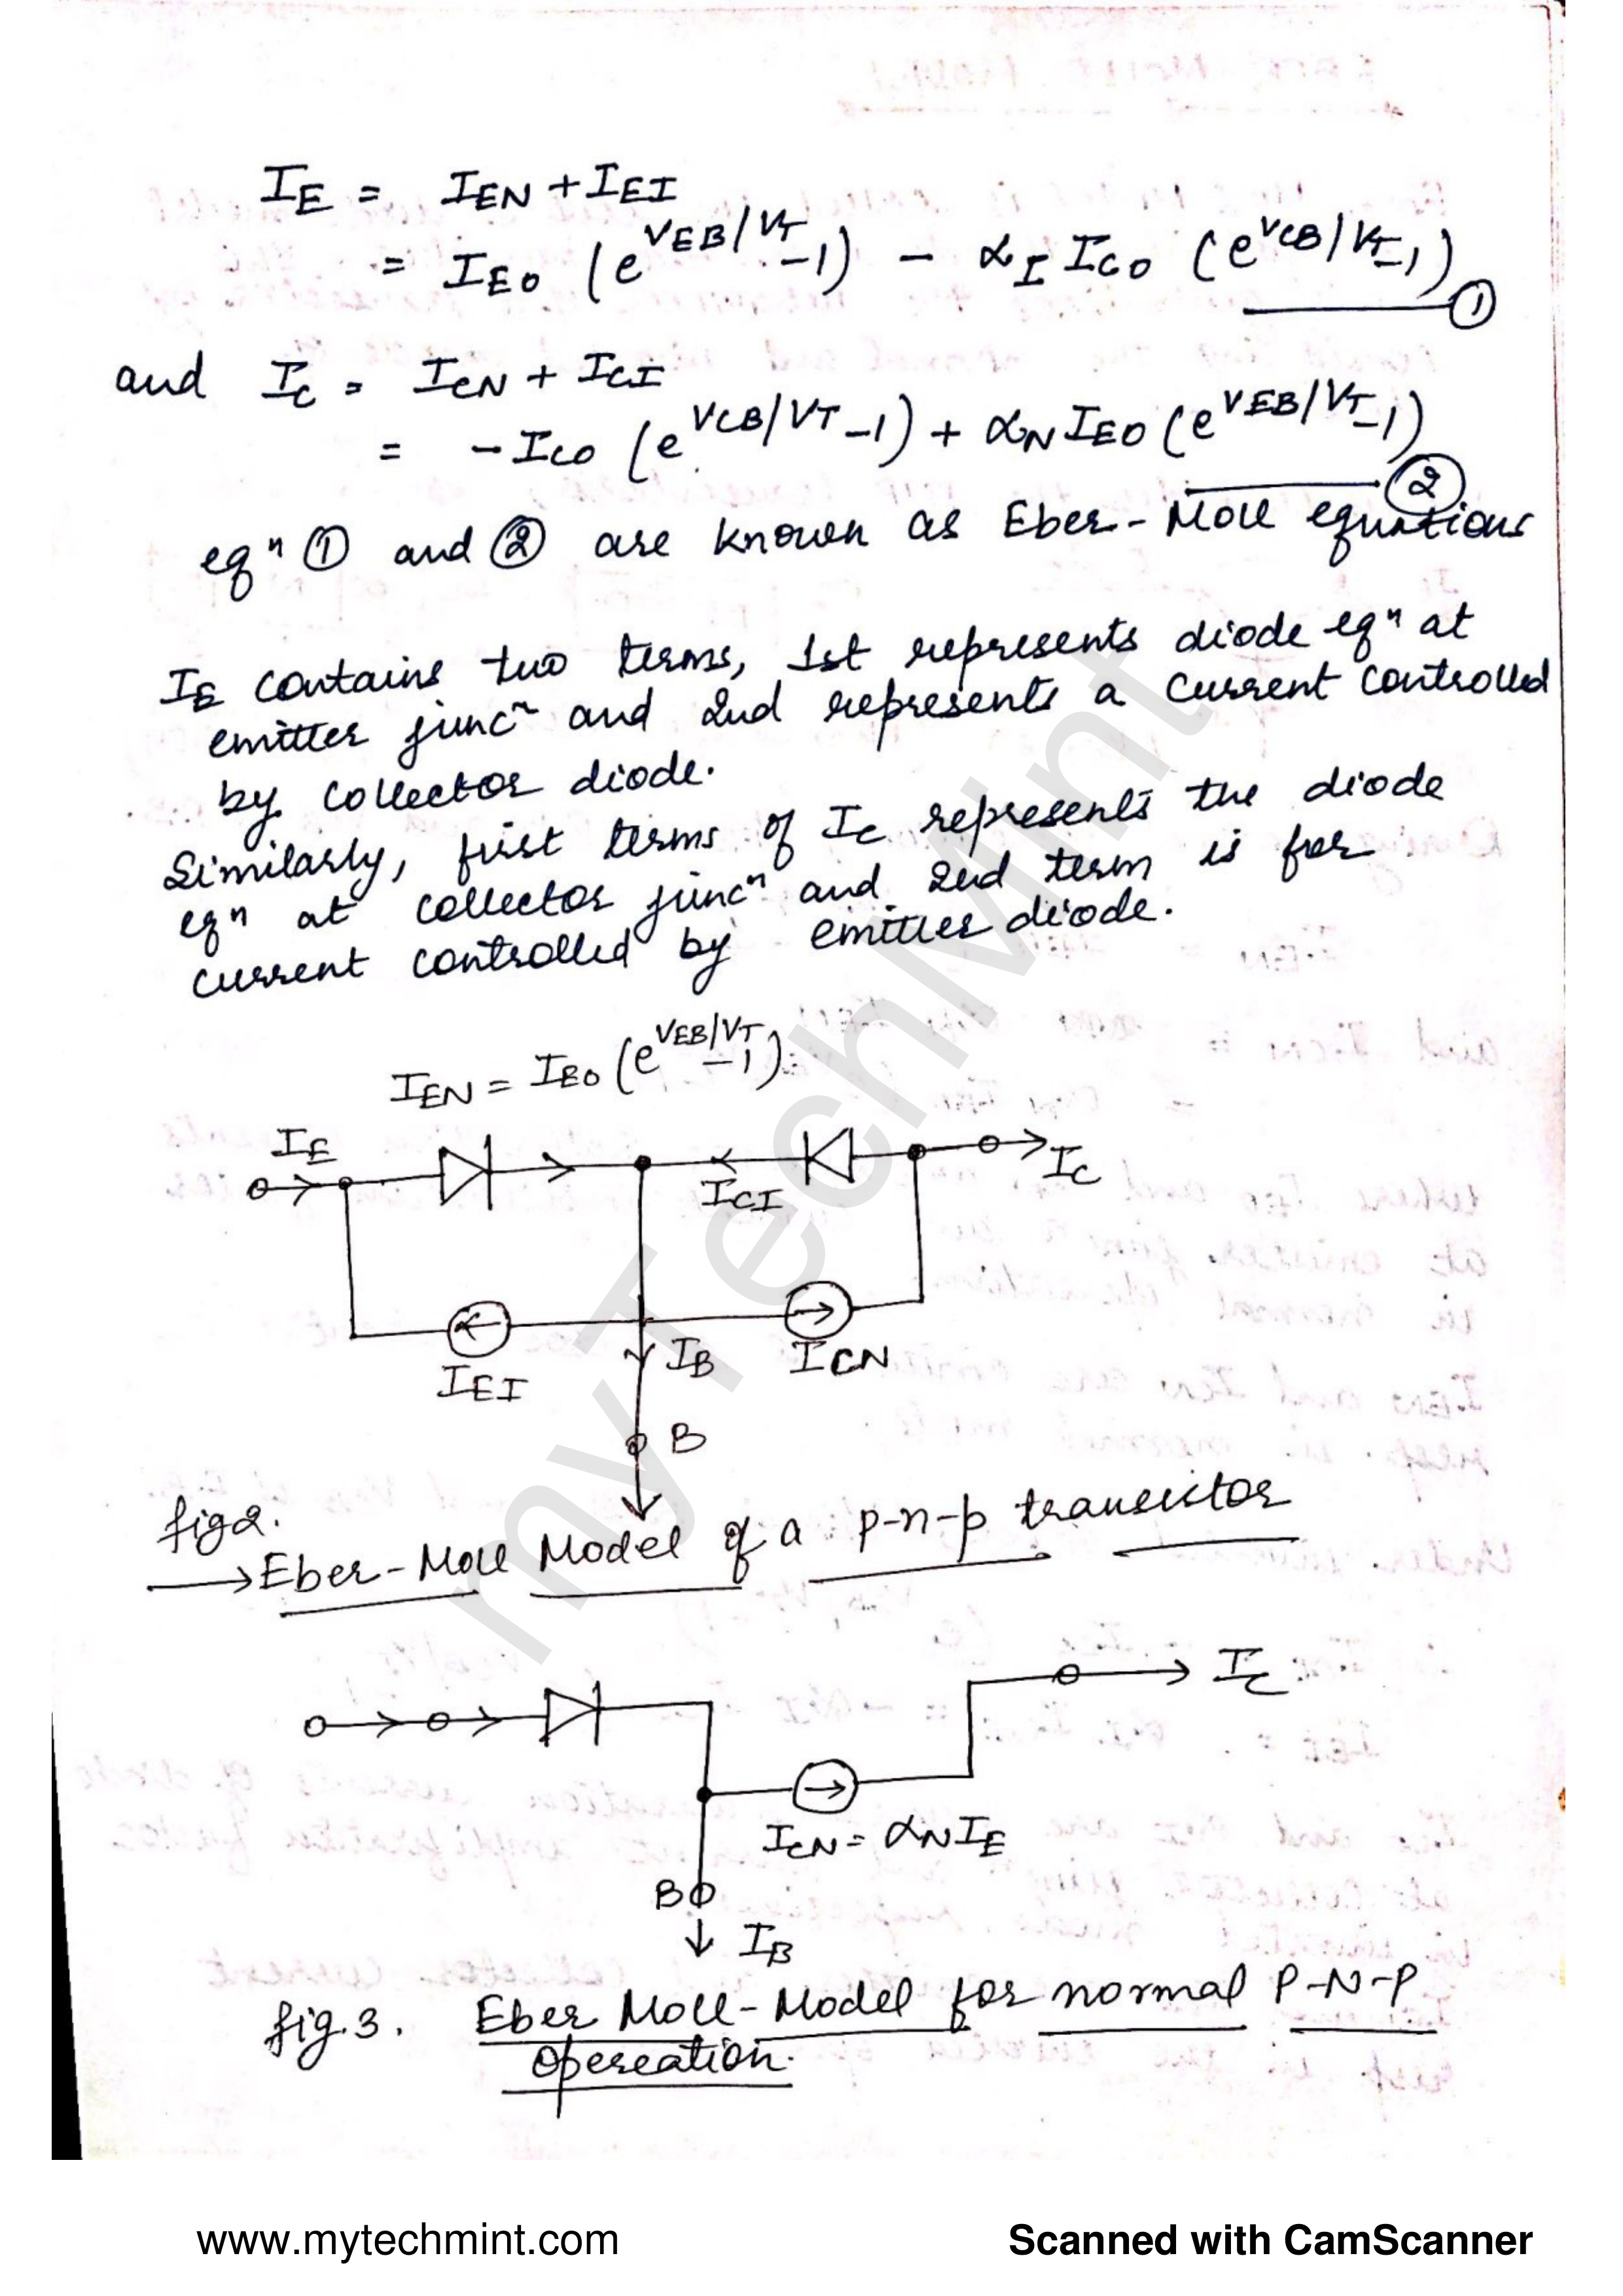 I_E = I_EN + I_EI
= I_EO (e^{V_EB/V_T} -1) - α_I I_CO (e^{V_CB/V_T} -1) ①
and I_C = I_CN + I_CI
= - I_CO (e^{V_CB/V_T} -1) + α_N I_EO (e^{V_EB/V_T} -1) ②
eqⁿ ① and ② are known as Eber-Moll equations
I_E contains two terms, 1st represents diode eqⁿ at
emitter juncⁿ and 2nd represents a current controlled
by collector diode.
Similarly, first terms of I_C represents the diode
eqⁿ at collector juncⁿ and 2nd term is for
current controlled by emitter diode.
I_EN = I_EO (e^{V_EB/V_T} -1)
I_E
I_C
I_CI
I_EI
I_B
I_CN
B
fig2.
→ Eber-Moll Model of a p-n-p transistor
I_C
I_CN = α_N I_E
B
I_B
fig.3. Eber Moll-Model for normal P-N-P
opereation.
myTechMint
www.mytechmint.com
Scanned with CamScanner